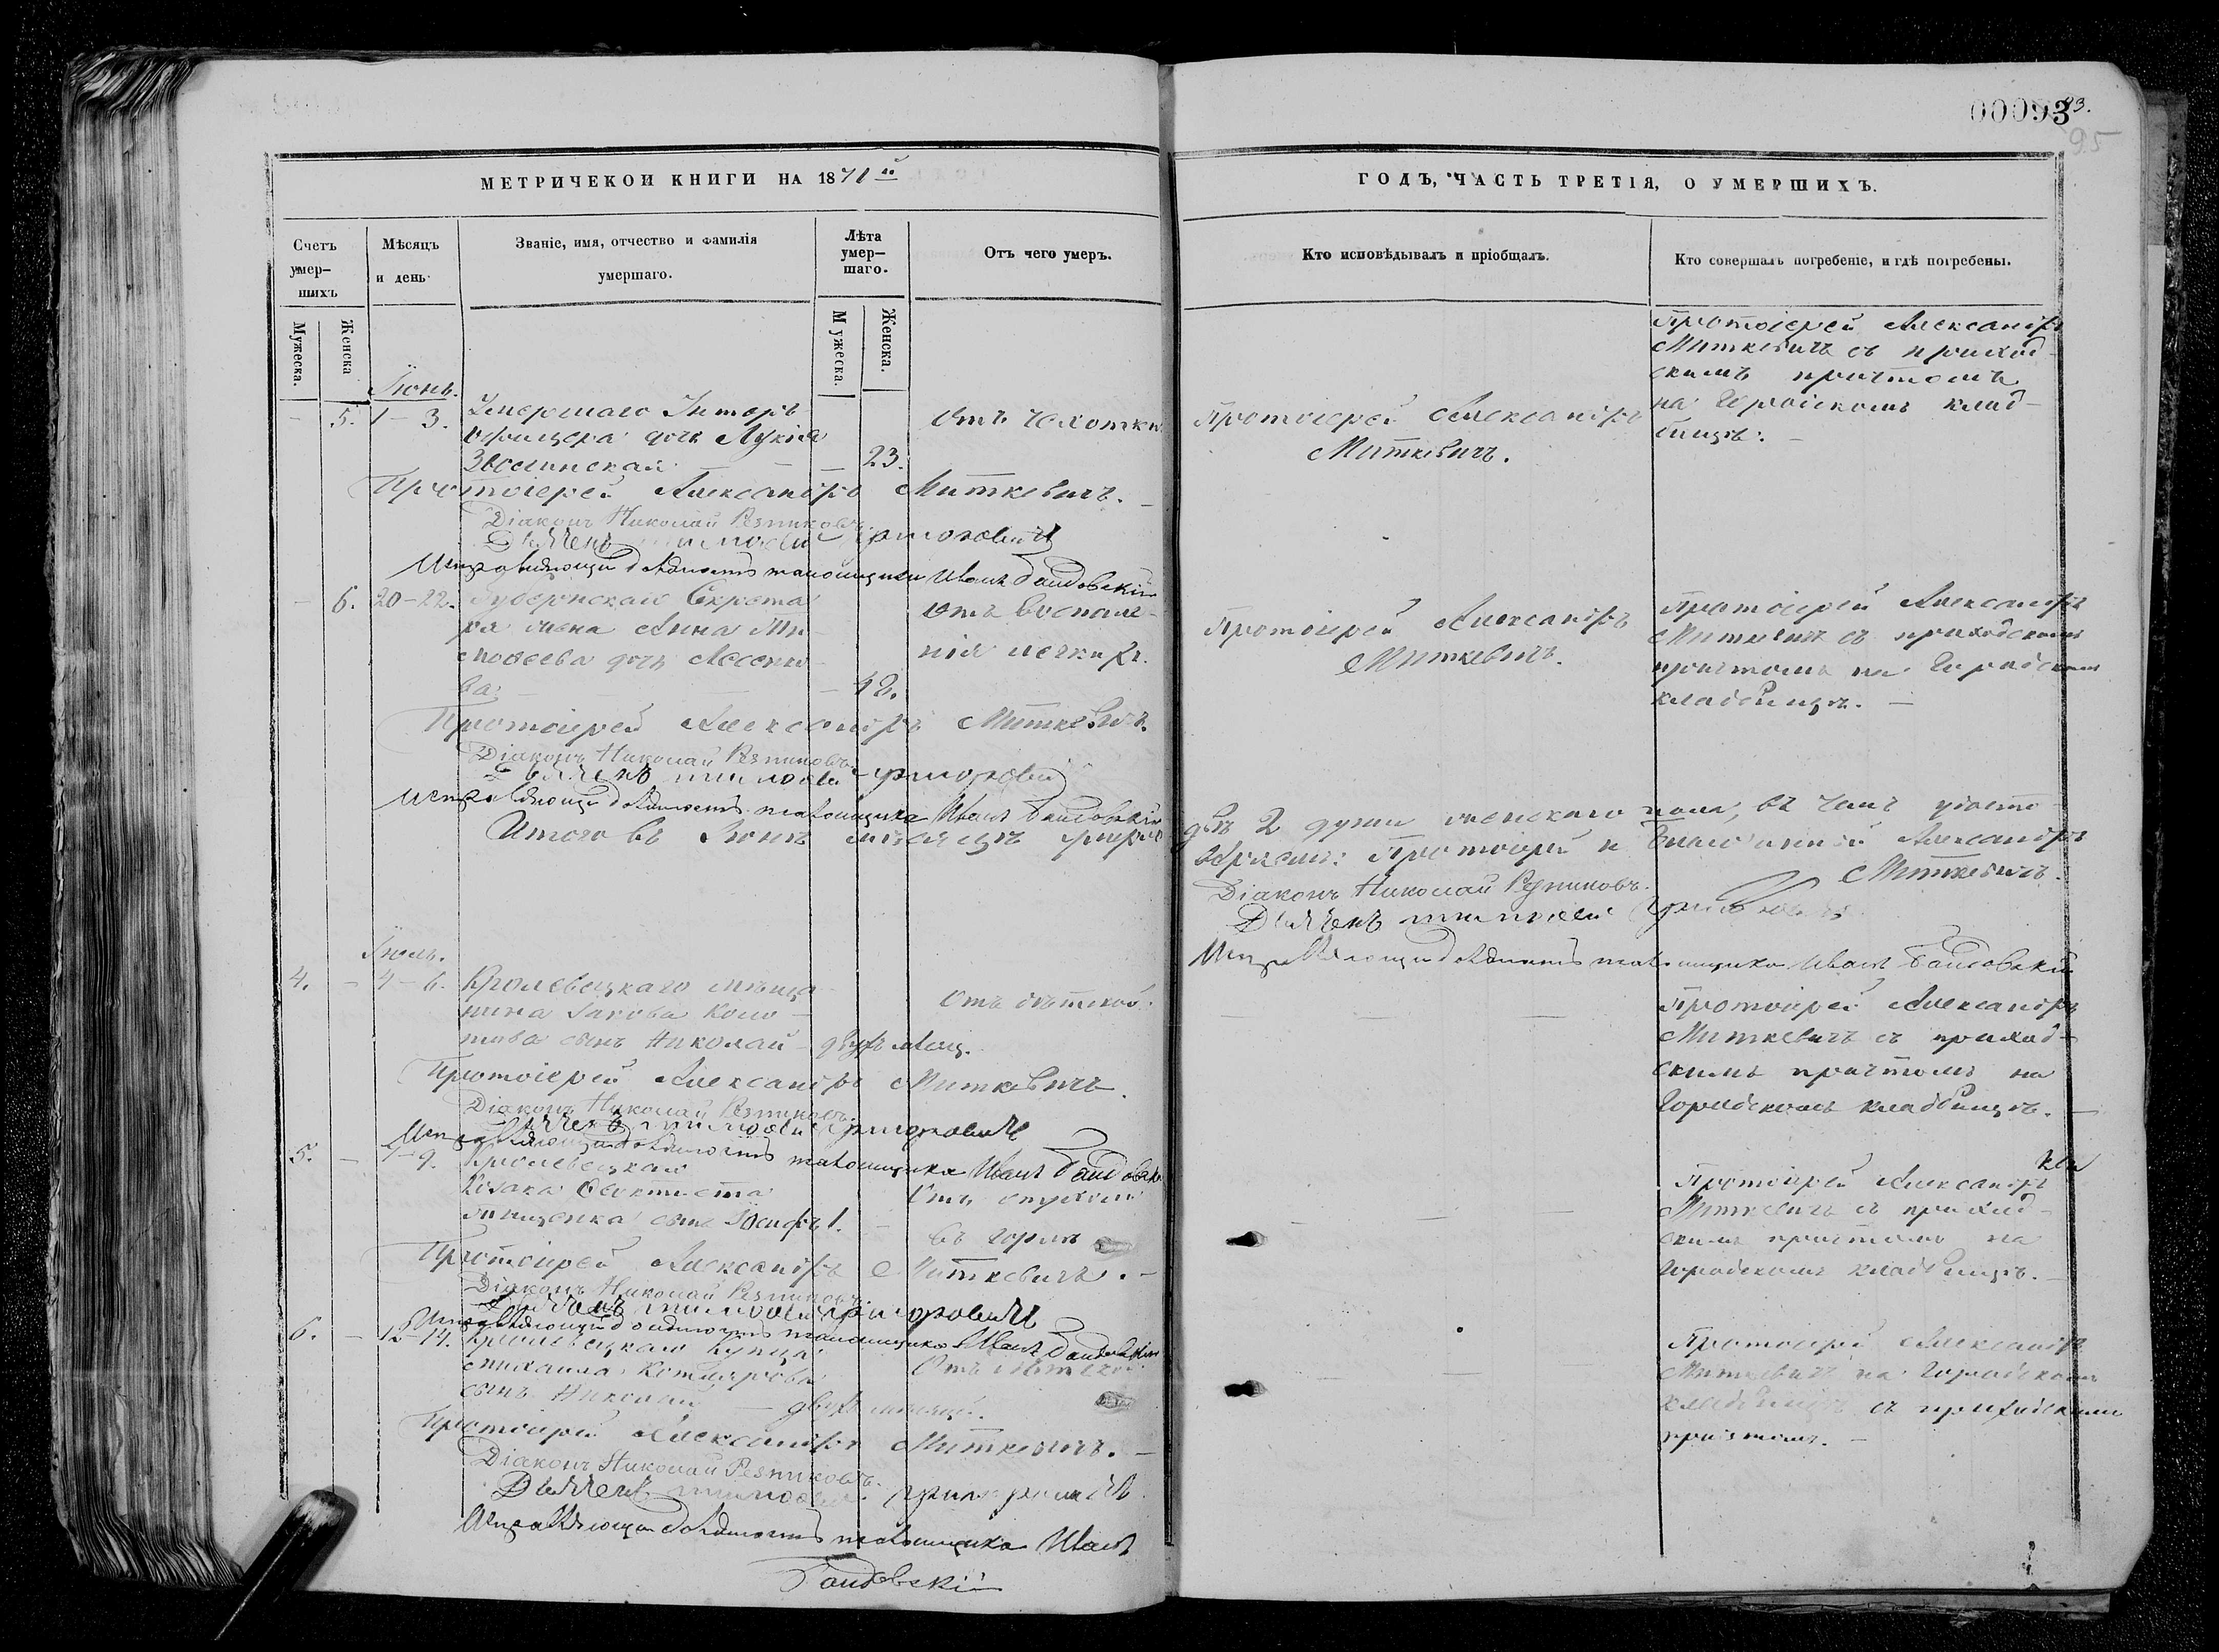 00093
93.
95
МЕТРИЧЕКОИ КНИГИ НА 1871й
ГОДЪ, ЧАСТЬ ТРЕТІЯ, О УМЕРШИХЪ.
Счетъ умер–шихъ
Мужеска.
Женска
Мѣсяцъ и день
Званіе, имя, отчество и фамилія умершаго.
Лѣта умер–шаго.
Мужеска.
Женска.
Отъ чего умеръ.
Кто исповѣдывалъ и пріобщалъ.
Кто совершалъ погребеніе, и гдѣ погребены.
Іюнь.
– 5. 1 – 3. Умершаго Унтеръ
офицера дочь Лукія
– 23.
Отъ чахотки
Протоіерей Александръ
Миткевичъ.
Протоіерей Александръ
Миткевичъ съ приход–
скимъ причтомъ
на Городскомъ клад–
бищѣ. –
Протоіерей Александръ Миткевичъ. –
Діаконъ Николай Резниковъ.
Дьячекъ Тимофей Григоровичъ
Исправляющій должность пономаря Иванъ
– 6. 20–22. Губернскаго Секрета–
ря жена Анна Ти–
мофеева дочь
ва – – 42.
Отъ воспале–
нія легкихъ.
Протоіерей Александръ
Миткевичъ.
Протоіерей Александръ
Миткевичъ съ приходскимъ
причтомъ на Городскомъ
кладбищѣ. –
Протоіерей Александръ Миткевичъ.
Діаконъ Николай Резниковъ
Дьячекъ Тимофей Григоровичъ
Исправляющій должность Иванъ
Итого въ Іюнѣ мѣсяцѣ умерло
двѣ 2 души женскаго пола, въ чемъ удосто–
вѣряемъ: Протоіерей и Благочинный Александръ
Миткевичъ.
Діаконъ Николай Резниковъ.
Дьячекъ Тимофей Григоровичъ
Исправляющій должность Иванъ
Іюль.
4. – 4 – 6. Кролевецкаго мѣща–
нина Іакова
сынъ Николай – двухъ мѣсяц.
Отъ дѣтской.
Протоіерей Александръ
Миткевичъ съ приход–
скимъ причтомъ на
Городскомъ кладбищѣ. –
Протоіерей Александръ Миткевичъ.
Діаконъ Николай Резниковъ.
Дьячекъ Тимофей Григоровичъ
Исправляющій должность Иванъ
5. – 7–9. Кролевецкаго
Козака Феоктиста
сынъ Іосифъ 1. –
Отъ опухоли
въ горлѣ
Протоіерей Александръ
Миткевичъ съ приход–
скимъ причтомъ на
городскомъ кладбищѣ. –
Протоіерей Александръ Миткевичъ. –
Діаконъ Николай Резниковъ.
Дьячекъ Тимофей Григоровичъ
Исправляющій должность Иванъ
6. – 12–14. Кролевецкаго купца
Михаила Котлярова
сынъ Николай – двухъ мѣсяц.
Отъ дѣтской.
Протоіерей Александръ
Миткевичъ на Городскомъ
кладбищѣ съ приходскимъ
причтомъ. –
Протоіерей Александръ Миткевичъ. –
Діаконъ Николай Резниковъ.
Дьячекъ Тимофей Григоровичъ
Исправляющій должность Иванъ